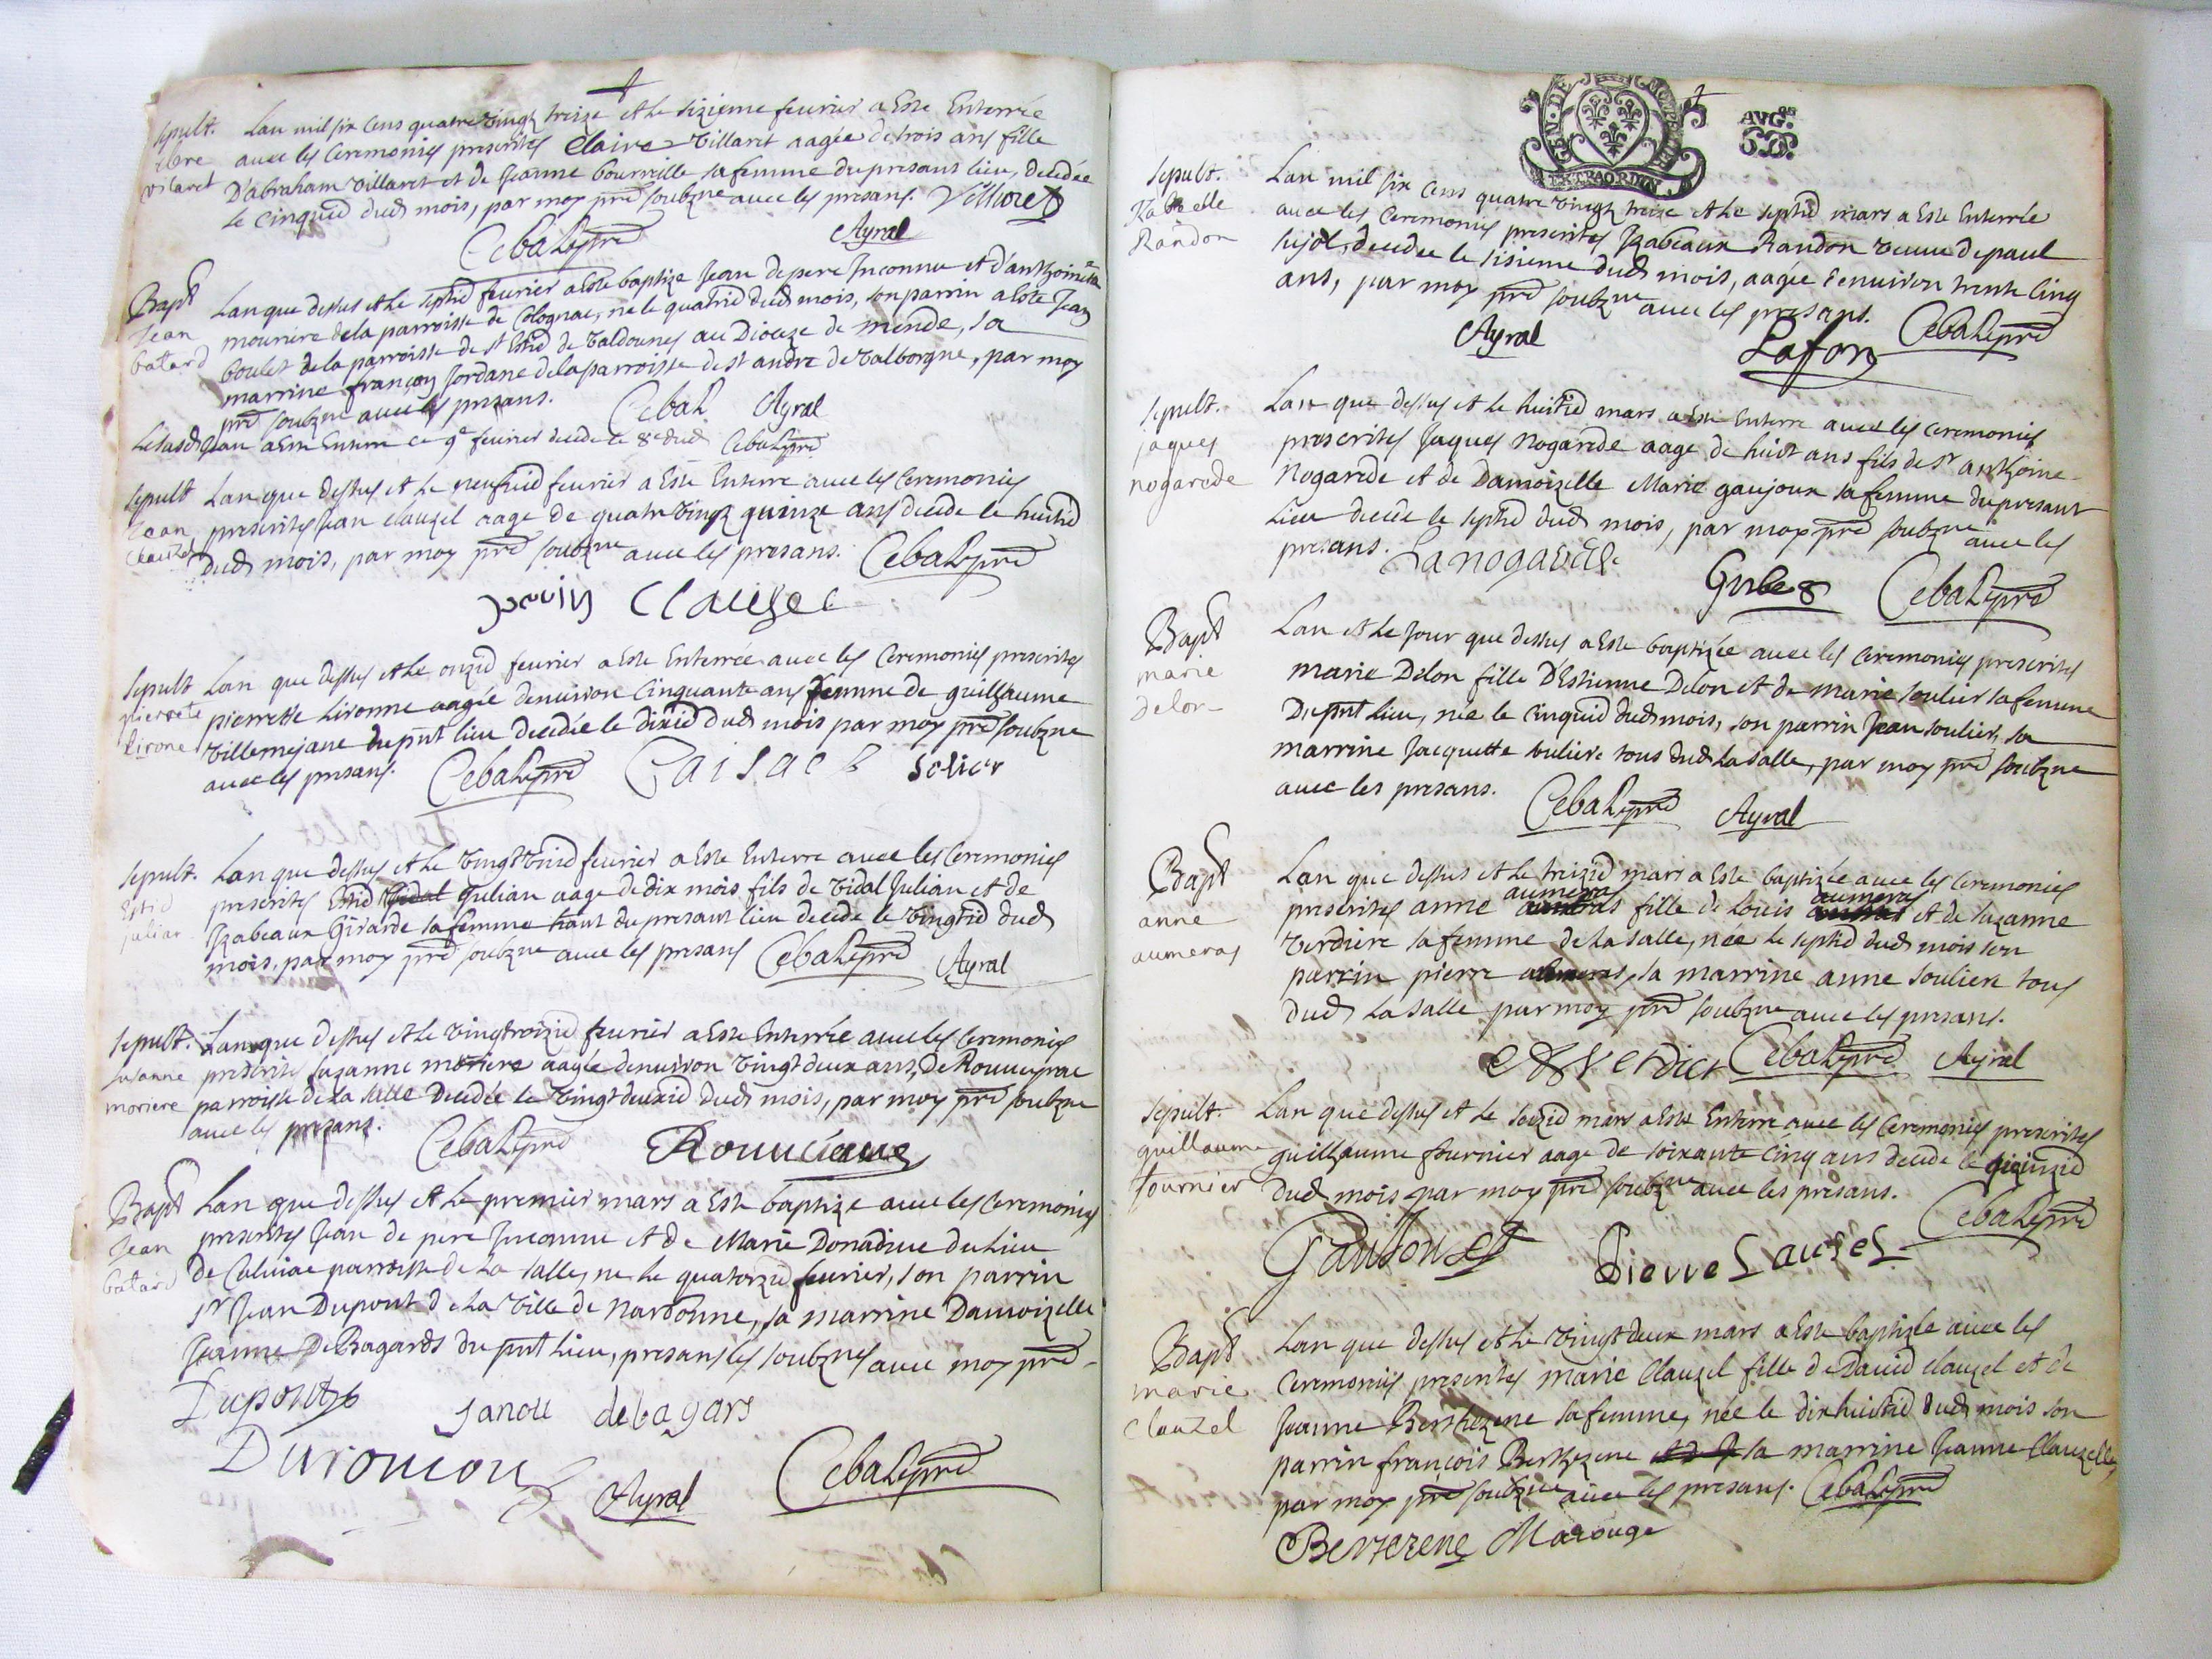 sepult.
clere
vilaret
Lan mil six cens quatre vingtz treize et le sizieme feurier a Este Enterrée
auec les Ceremonies prescrites Claire Villaret aagée de trois ans fille
D'abraham Villaret et de Jeanne bourrille sa femme du presant lieu, decedée
le cinquie dud mois, par moy pre soubzne auec les presans. Villaret
Cebal pre Ayral
Bapt
Jean
batard
Lan que dessus et le septie feurier a Este baptize Jean de pere Inconnu et d'anthoinete
mourire de la parroisse de Colognac, ne le quatrie dud mois, son parrin a Este Jean
boulet de la parroisse de st Estie de Valdounes au Dioceze de mende, sa
marrine françon Jordane de la parroisse de st andre de Valborgne, par moy
pre soubzne auec les presans. Cebal Ayral
Le susd Jean a Este Enterre ce 9e feurier decede le 8e dud Cebal pre
sepult
Jean
Clauzel
Lan que dessus et le neufuie feurier a Este Enterre auec les Ceremonies
prescrites Jean clauzel aage de quatre vingtz quinze ans decede le huitie
dud mois, par moy pre soubzne auec les presans. Cebal pre
Clausel
sepult
pierrete
lirone
Lan que dessus et le onzie feurier a Este Enterrée auec les Ceremonies prescrites
pierrette Lironne aagée denuiron Cinquante ans femme de guilhaume
Villemejane du pnt lieu decedée le dixie dud mois par moy pre soubzne
auec les presans. Cebal pre Caisac Solier
sepult.
Estie
julian
Lan que dessus et le vingt vnie feurier a Este Enterre auec les Ceremonies
prescrites Estie Vidal Julian aage de dix mois fils de Vidal Julian et de
Izabeaux Girarde sa femme hant du presant lieu decede le vingtie dud
mois, par moy pre soubzne auec les presans Cebal pre Ayral
sepult.
susanne
moriere
Lan que dessus et le vingtroizie feurier a Este Enterrée auec les Ceremonies
prescrites suzanne moriere aagée denuiron vingt deux ans, De
parroisse de la salle Decedée le vingt deuxie dud mois, par moy pre soubzne
auec les presans. Cebal pre
Bapt
Jean
batard
Lan que dessus et le premier mars a Este baptize auec les Ceremonies
prescrites Jean de pere Inconnu et de Marie Donadiue du lieu
De Caluiac parroisse de La salle, ne le quatorzie feurier, son parrin
sr Jean Dupont de la Ville de narbonne, sa marrine Damoizelle
Jeanne De Bagards du pnt lieu, presans les soubznes auec moy pre
Dupont janou debagars
Ayral Cebal pre
GEN. DE MONTPELLIER
EXTRAORDIN.
sepult.
Izabelle
Randon
Lan mil six cens quatre vingtz treize et le septie mars a Este Enterrée
auec les Ceremonies prescrites Izabeaux Randon veuue de paul
sujol, decedée le sisieme dud mois, aagée d'enuiron trente cinq
ans, par moy pre soubzne auec les presans. Cebal pre
Ayral Lafon
sepult.
jaques
nogarede
Lan que dessus et le huitie mars a Este Enterre auec les ceremonies
prescrites Jaques nogarede aage de huit ans fils de sr anthoine
Nogarede et de Damoizelle Marie gaujoux sa femme du presant
Lieu decede le septie dud mois, par moy pre soubzne auec les
presans. Lanogarede Cebal pre
Bapt
marie
delon
Lan et le Jour que dessus a Este baptizée auec les ceremonies prescrites
marie Delon fille D'Estienne Delon et de marie soulier sa femme
Du pnt lieu, née le cinquie dud mois, son parrin Jean soulier, sa
marrine Jacquette soulieire tous dud La salle, par moy pre soubzne
auec les presans. Cebal pre Ayral
Bapt
anne
aumeras
Lan que dessus et le treizie mars a Este baptizée auec les Ceremonies
prescrites anne aumeras fille de Louis aumeras et de suzanne
Verdiere sa femme de La salle, née le septie dud mois son
parrin pierre aumeras, sa marrine anne souliere tous
dud La salle par moy pre soubzne auec les presans.
Verdier Cebal pre Ayral
sepult.
guillaume
fournier
Lan que dessus et le seizie mars a Este Enterre auec les Ceremonies prescrites
guilhaume fournier aage de soixante cinq ans decede le quinzie
dud mois par moy pre soubzne auec les presans.
Cebal pre
Pierre Lausel
Bapt
marie
Clauzel
Lan que dessus et le vingt deux mars a Este baptizée auec les
Ceremonies prescrites marie Clauzel fille de Dauid clauzel et de
Jeanne Berthezene sa femme, née le dix huitie dud mois son
parrin françois Berthezene sa marrine Jeanne Clauzelle,
par moy pre soubzne auec les presans. Cebal pre
Berterene Marouge